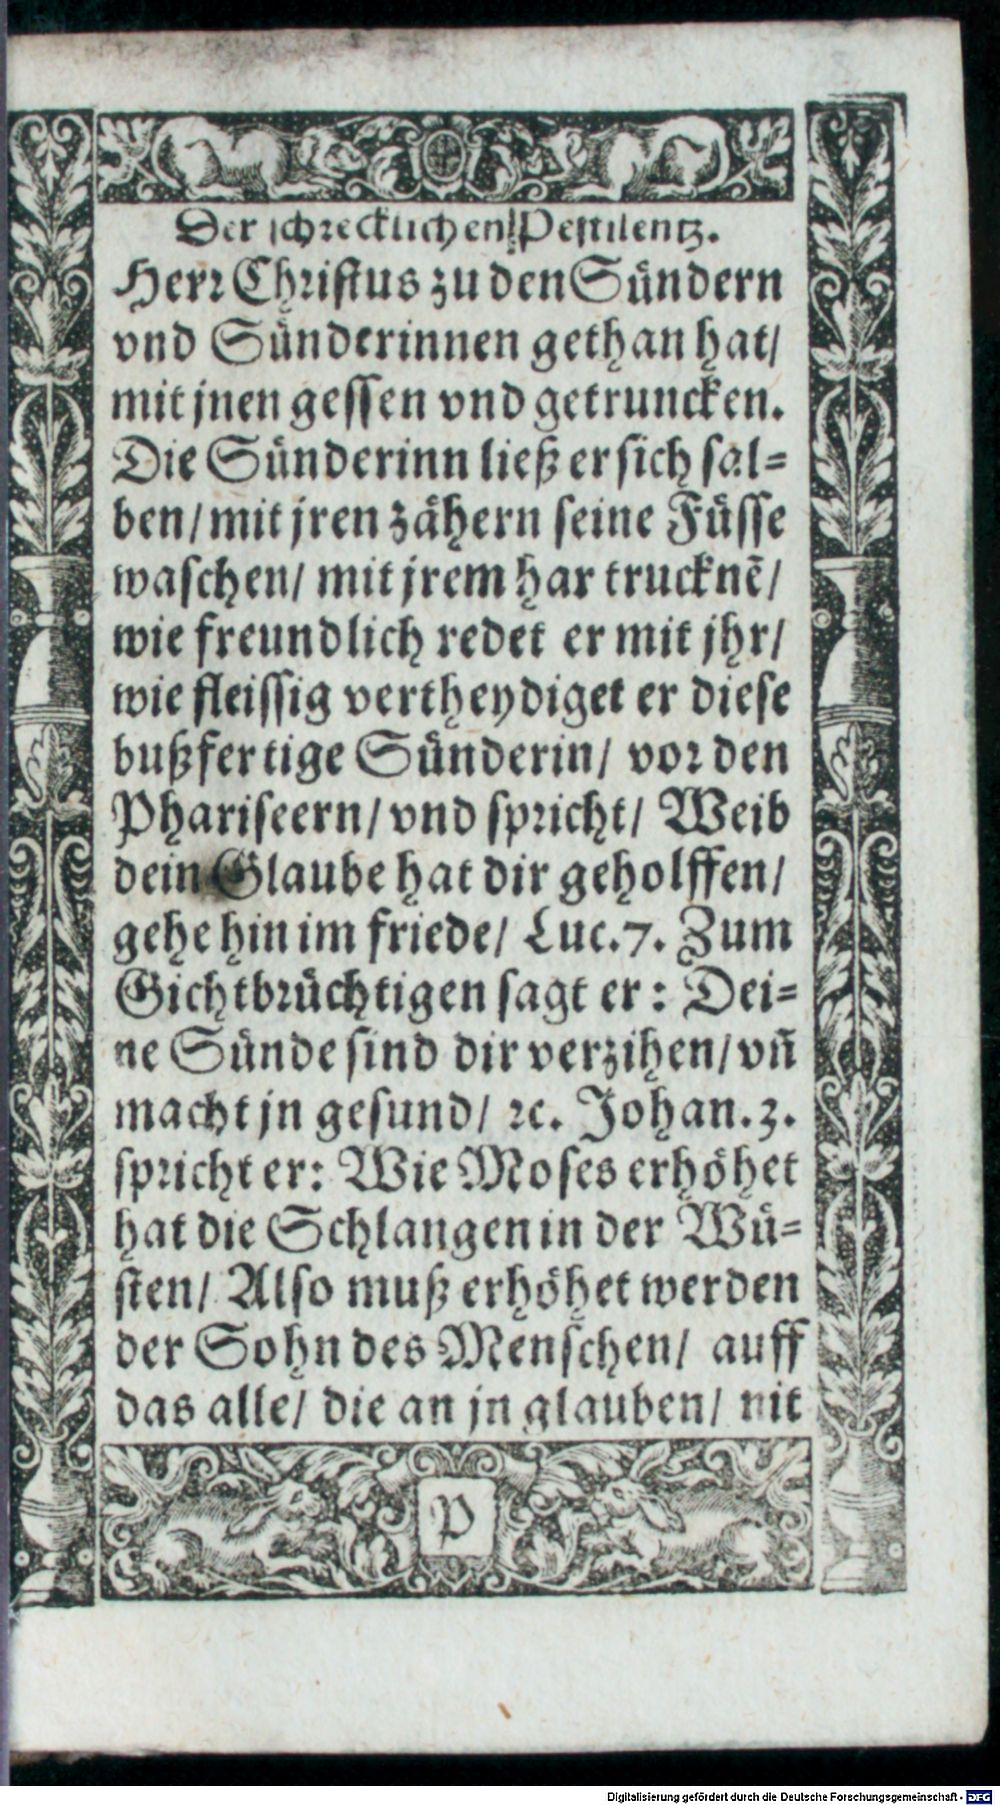 Der schrecklichen Pestilentz.
Herr Christus zu den Sündern
vnd Sünderinnen gethan hat/
mit jnen gessen vnd getruncken.
Die Sünderinn ließ er sich sal=
ben/ mit jren zähern seine Füsse
waschen/ mit jrem har trucknē/
wie freundlich redet er mit jhr/
wie fleissig vertheydiget er diese
bußfertige Sünderin/ vor den
Phariseern/ vnd spricht/ Weib
dein Glaube hat dir geholffen/
gehe hin im friede/ Luc. 7. Zum
Gichtbrüchtigen sagt er: Dei=
ne Sünde sind dir verzihen/ vñ
macht jn gesund/ ꝛc. Johan. 3.
spricht er: Wie Moses erhöhet
hat die Schlangen in der Wü=
sten/ Also muß erhöhet werden
der Sohn des Menschen/ auff
das alle/ die an jn glauben/ nit
P
Digitalisierung gefördert durch die Deutsche Forschungsgemeinschaft - DFG